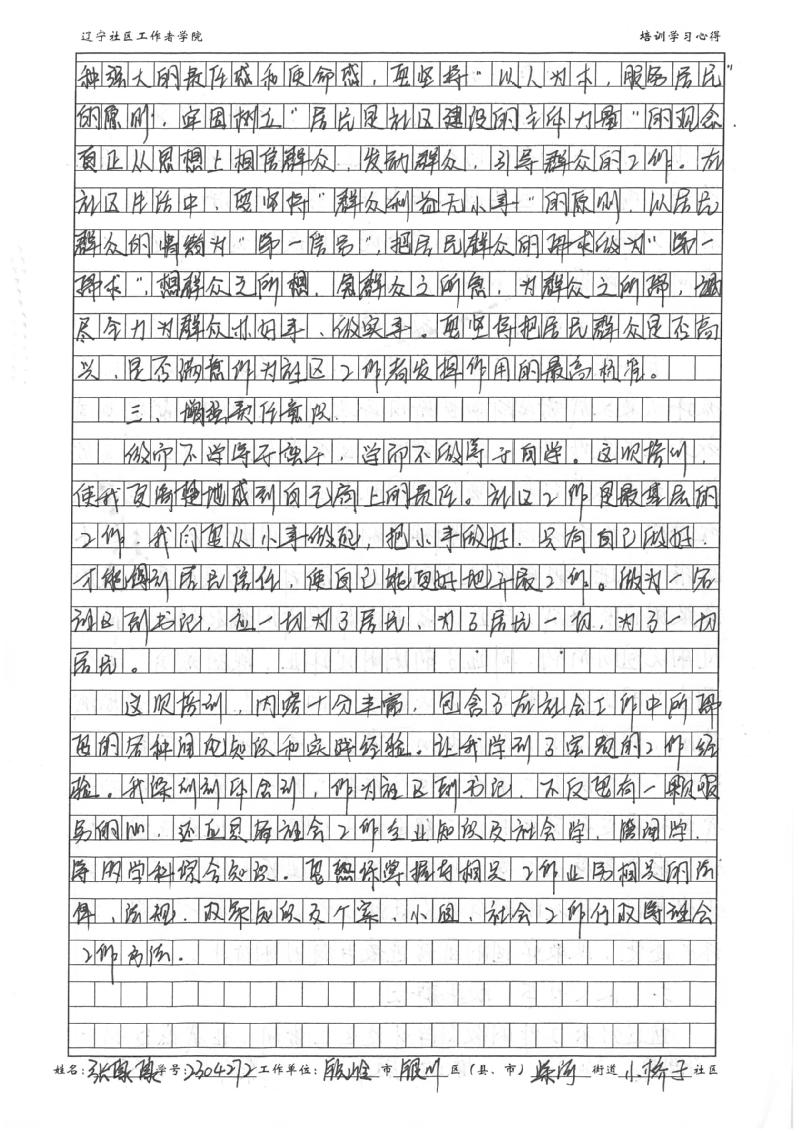 辽宁社区工作者学院 培训学习心得
种强大的责任感和使命感,要坚持"以人为本,服务居民"
的原则,牢固树立"居民是社区建设的主体力量"的观念
真正从思想上相信群众,发动群众,引导群众的工作。在
社区生活中,要坚持"群众利益无小事"的原则,以居民
群众的情绪为"第一信号",把居民群众的需求做为"第一
需求",想群众之所想,急群众之所急,为群众之所需,竭
尽全力为群众办好事、做实事。要坚持把居民群众是否高
兴、是否满意作为社区工作者发挥作用的最高标准。
三、增强责任意识
做而不学等于蛮干,学而不做等于白学。这次培训,
使我更清楚地感到自己肩上的责任。社区工作是最基层的
工作,我们要从小事做起,把小事做好,只有自己做好,
才能得到居民信任,使自己能更好地开展工作。做为一名
社区副书记,应一切为了居民、为了居民一切,为了一切
居民。
这次培训,内容十分丰富,包含了在社会工作中所需
要的各种理论知识和实践经验。让我学到了宝贵的工作经
验。我深刻体会到,作为社区副书记,不仅要有一颗服
务的心,还应具备社会工作专业知识及社会学、管理学、
等的学科综合知识。要熟练掌握与相关工作业务相关的法
律,法规,政策知识及个案、小组、社会工作行政等社会
工作方法。
姓名: 学号:2304272 工作单位: 市 银川 区(县、市) 街道 小桥子 社区